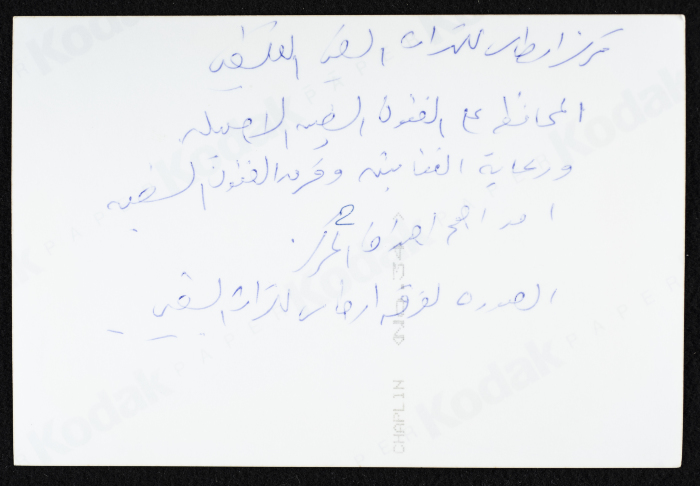 مركز ارطاس للتراث الشعبي الفلسطيني
المحافظه على الفنون الشعبيه الاصيله
ورعاية الفنانين وفرق الفنون الشعبيه
احد اهم اهداف المركز.
الصوره لفرقه ارطاس للتراث الشعبي
Kodak
PAPER
CHAPLIN